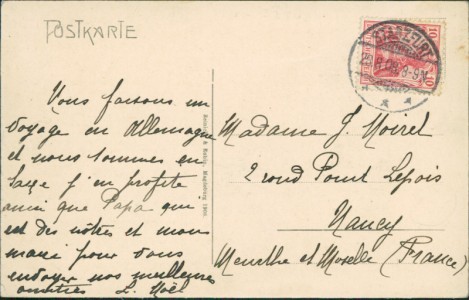 POSTKARTE
STASSFURT
8-9N.
10
Vous faisons un
voyage en Allemagne
et nous sommes en
Saxe j'en profite
ainsi que Papa qui
est des nôtres et mon
mari pour vous
envoyer nos meilleures
amitiés L. Noël
Madame J. Moirel
2 rond Point Lepois
Nancy
Meurthe et Moselle (France)